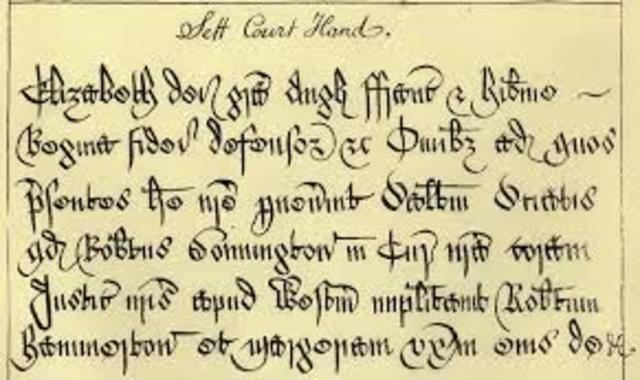 Sett Court Hand.
Elizabeth dei grã Angl ffranc & Hib̃nie ~
Regina fidei defensor &c Om̃ibz ad quos
p̃sentes lr̃e nr̃e pṽenint Sal̃tm Sciatis
qd Rob̃tus in Cur nr̃a coram
Justic nr̃is apud Westm̃ Rob̃tum
et Margeriam de